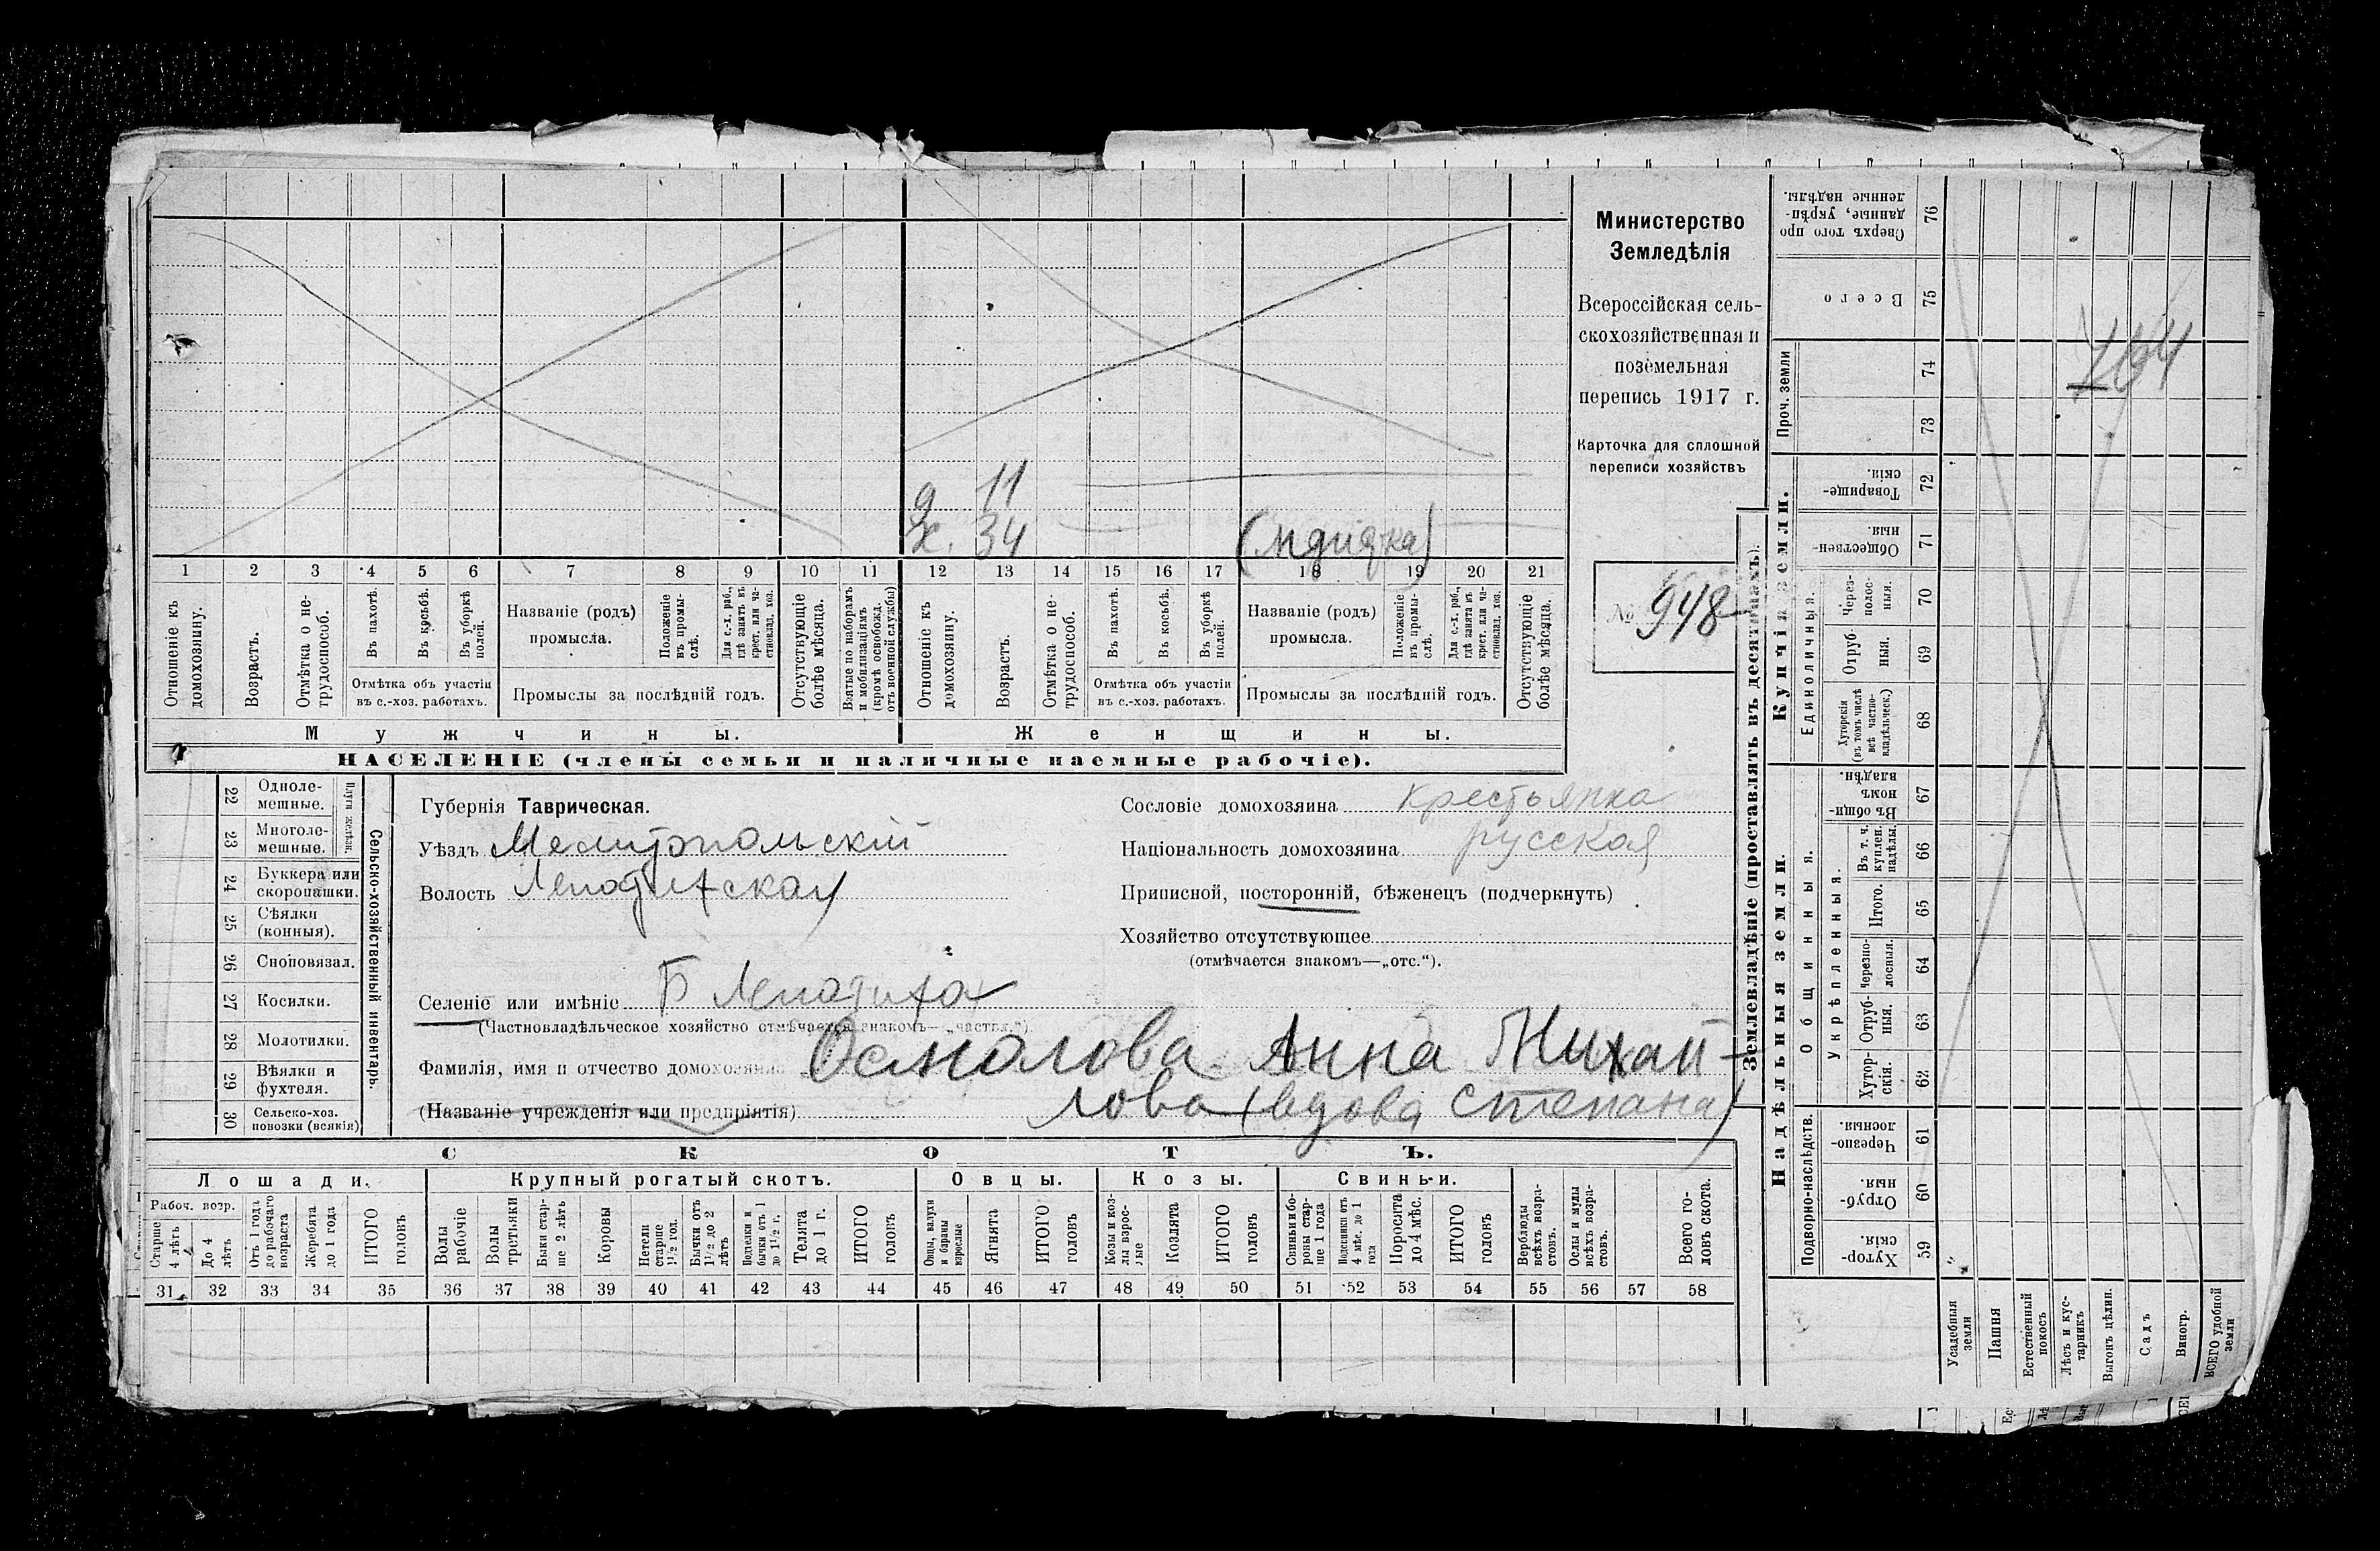 Министерство
Земледѣлія
Всероссійская сель-
скохозяйственная и
поземельная
перепись 1917 г.
Карточка для сплошной
переписи хозяйствъ
№ 948
д 11
х. 34
1 2 3 4 5 6 7 8 9 10 11 12 13 14 15 16 17 18 19 20 21
Отношеніе къ домохозяину.
Возрастъ.
Отмѣтка о не-трудоспособ.
Въ пахотѣ.
Въ косьбѣ.
Въ уборкѣ полей.
Отмѣтка объ участіи
въ с.-хоз. работахъ.
Названіе (родъ)
промысла.
Положеніе въ промы-слѣ.
Для с.-х. раб., гдѣ занятъ въ крест. или ча-стновлад. хоз.
Промыслы за послѣдній годъ.
Отсутствующіе болѣе мѣсяца.
Взятые по наборамъ и мобилизаціямъ (кромѣ освобожд. отъ военной службы)
Отношеніе къ домохозяину.
Возрастъ.
Отмѣтка о не-трудоспособ.
Въ пахотѣ.
Въ косьбѣ.
Въ уборкѣ полей.
Отмѣтка объ участіи
въ с.-хоз. работахъ.
Названіе (родъ)
промысла.
Положеніе въ промы-слѣ.
Для с.-х. раб., гдѣ занята въ крест. или ча-стновлад. хоз.
Промыслы за послѣдній годъ.
Отсутствующіе болѣе мѣсяца.
Мужчины.
Женщины.
НАСЕЛЕНІЕ (члены семьи и наличные наемные рабочіе).
22 Одноле-мешные.
23 Многоле-мешные.
Плуги желѣзн.
24 Буккера или скоропашки.
25 Сѣялки (конныя).
26 Сноповязал.
27 Косилки.
28 Молотилки.
29 Вѣялки и фухтеля.
30 Сельско-хоз. повозки (всякія)
Сельско-хозяйственный инвентарь.
Губернія Таврическая.
Уѣздъ Мелитопольскій
Волость Лепатихская
Селеніе или имѣніе Б Лепатиха
(Частновладѣльческое хозяйство отмѣчается знакомъ—„частвл.“)
Фамилія, имя и отчество домохозяина Осмолова Анна Михай-
(Названіе учрежденія или предпріятія) лова (вдова Степана)
Сословіе домохозяина крестьянка
Національность домохозяина русская
Приписной, посторонній, бѣженецъ (подчеркнуть)
Хозяйство отсутствующее
(отмѣчается знакомъ—„отс.“).
СКОТЪ.
Лошади.
Крупный рогатый скотъ.
Овцы.
Козы.
Свиньи.
Рабоч. возр.
Старше 4 лѣтъ
До 4 лѣтъ
Отъ 1 года до рабочаго возраста
Жеребята до 1 года
ИТОГО головъ
Волы рабочіе
Волы третьяки
Быки стар-ше 2 лѣтъ
Коровы
Нетели старше 1½ год.
Бычки отъ 1½ до 2 лѣтъ
Подтелки и бычки отъ 1 до 1½ г.
Телята до 1 г.
ИТОГО головъ
Овцы, валухи и бараны взрослые
Ягнята
ИТОГО головъ
Козы и коз-лы взрос-лые
Козлята
ИТОГО головъ
Свиньи и бо-ровы стар-ше 1 года
Подсвинки отъ 4 мѣс. до 1 года
Поросята до 4 мѣс.
ИТОГО головъ
Верблюды всѣхъ возра-стовъ.
Ослы и мулы всѣхъ возра-стовъ.
Всего го-ловъ скота.
31 32 33 34 35 36 37 38 39 40 41 42 43 44 45 46 47 48 49 50 51 52 53 54 55 56 57 58
Землевладѣніе (проставлять въ десятинахъ).
Надѣльныя земли.
Купчія земли.
Проч. земли
Подворно-наслѣдств.
Общинныя.
Укрѣпленныя.
Единоличныя.
Сверхъ того про данные, укрѣп-ленные надѣлы. 76
Всего 75
74
73
Товарище-скія. 72
Обществен-ныя. 71
Через-полос-ныя. 70
Отруб-ныя. 69
Хуторскія (въ томъ числѣ всѣ частно-владѣльческ.) 68
Въ общи-номъ владѣн. 67
Въ т. ч. куплен. надѣлы. 66
Итого. 65
Черезпо-лосныя. 64
Отруб-ныя. 63
Хутор-скія. 62
Черезпо-лосныя. 61
Отруб-ныя. 60
Хутор-скія. 59
Усадебныя земли
Пашня
Естественный покосъ
Лѣсъ и кус-тарникъ
Выгонъ цѣлин.
Садъ
Виногр.
ВСЕГО удобной земли